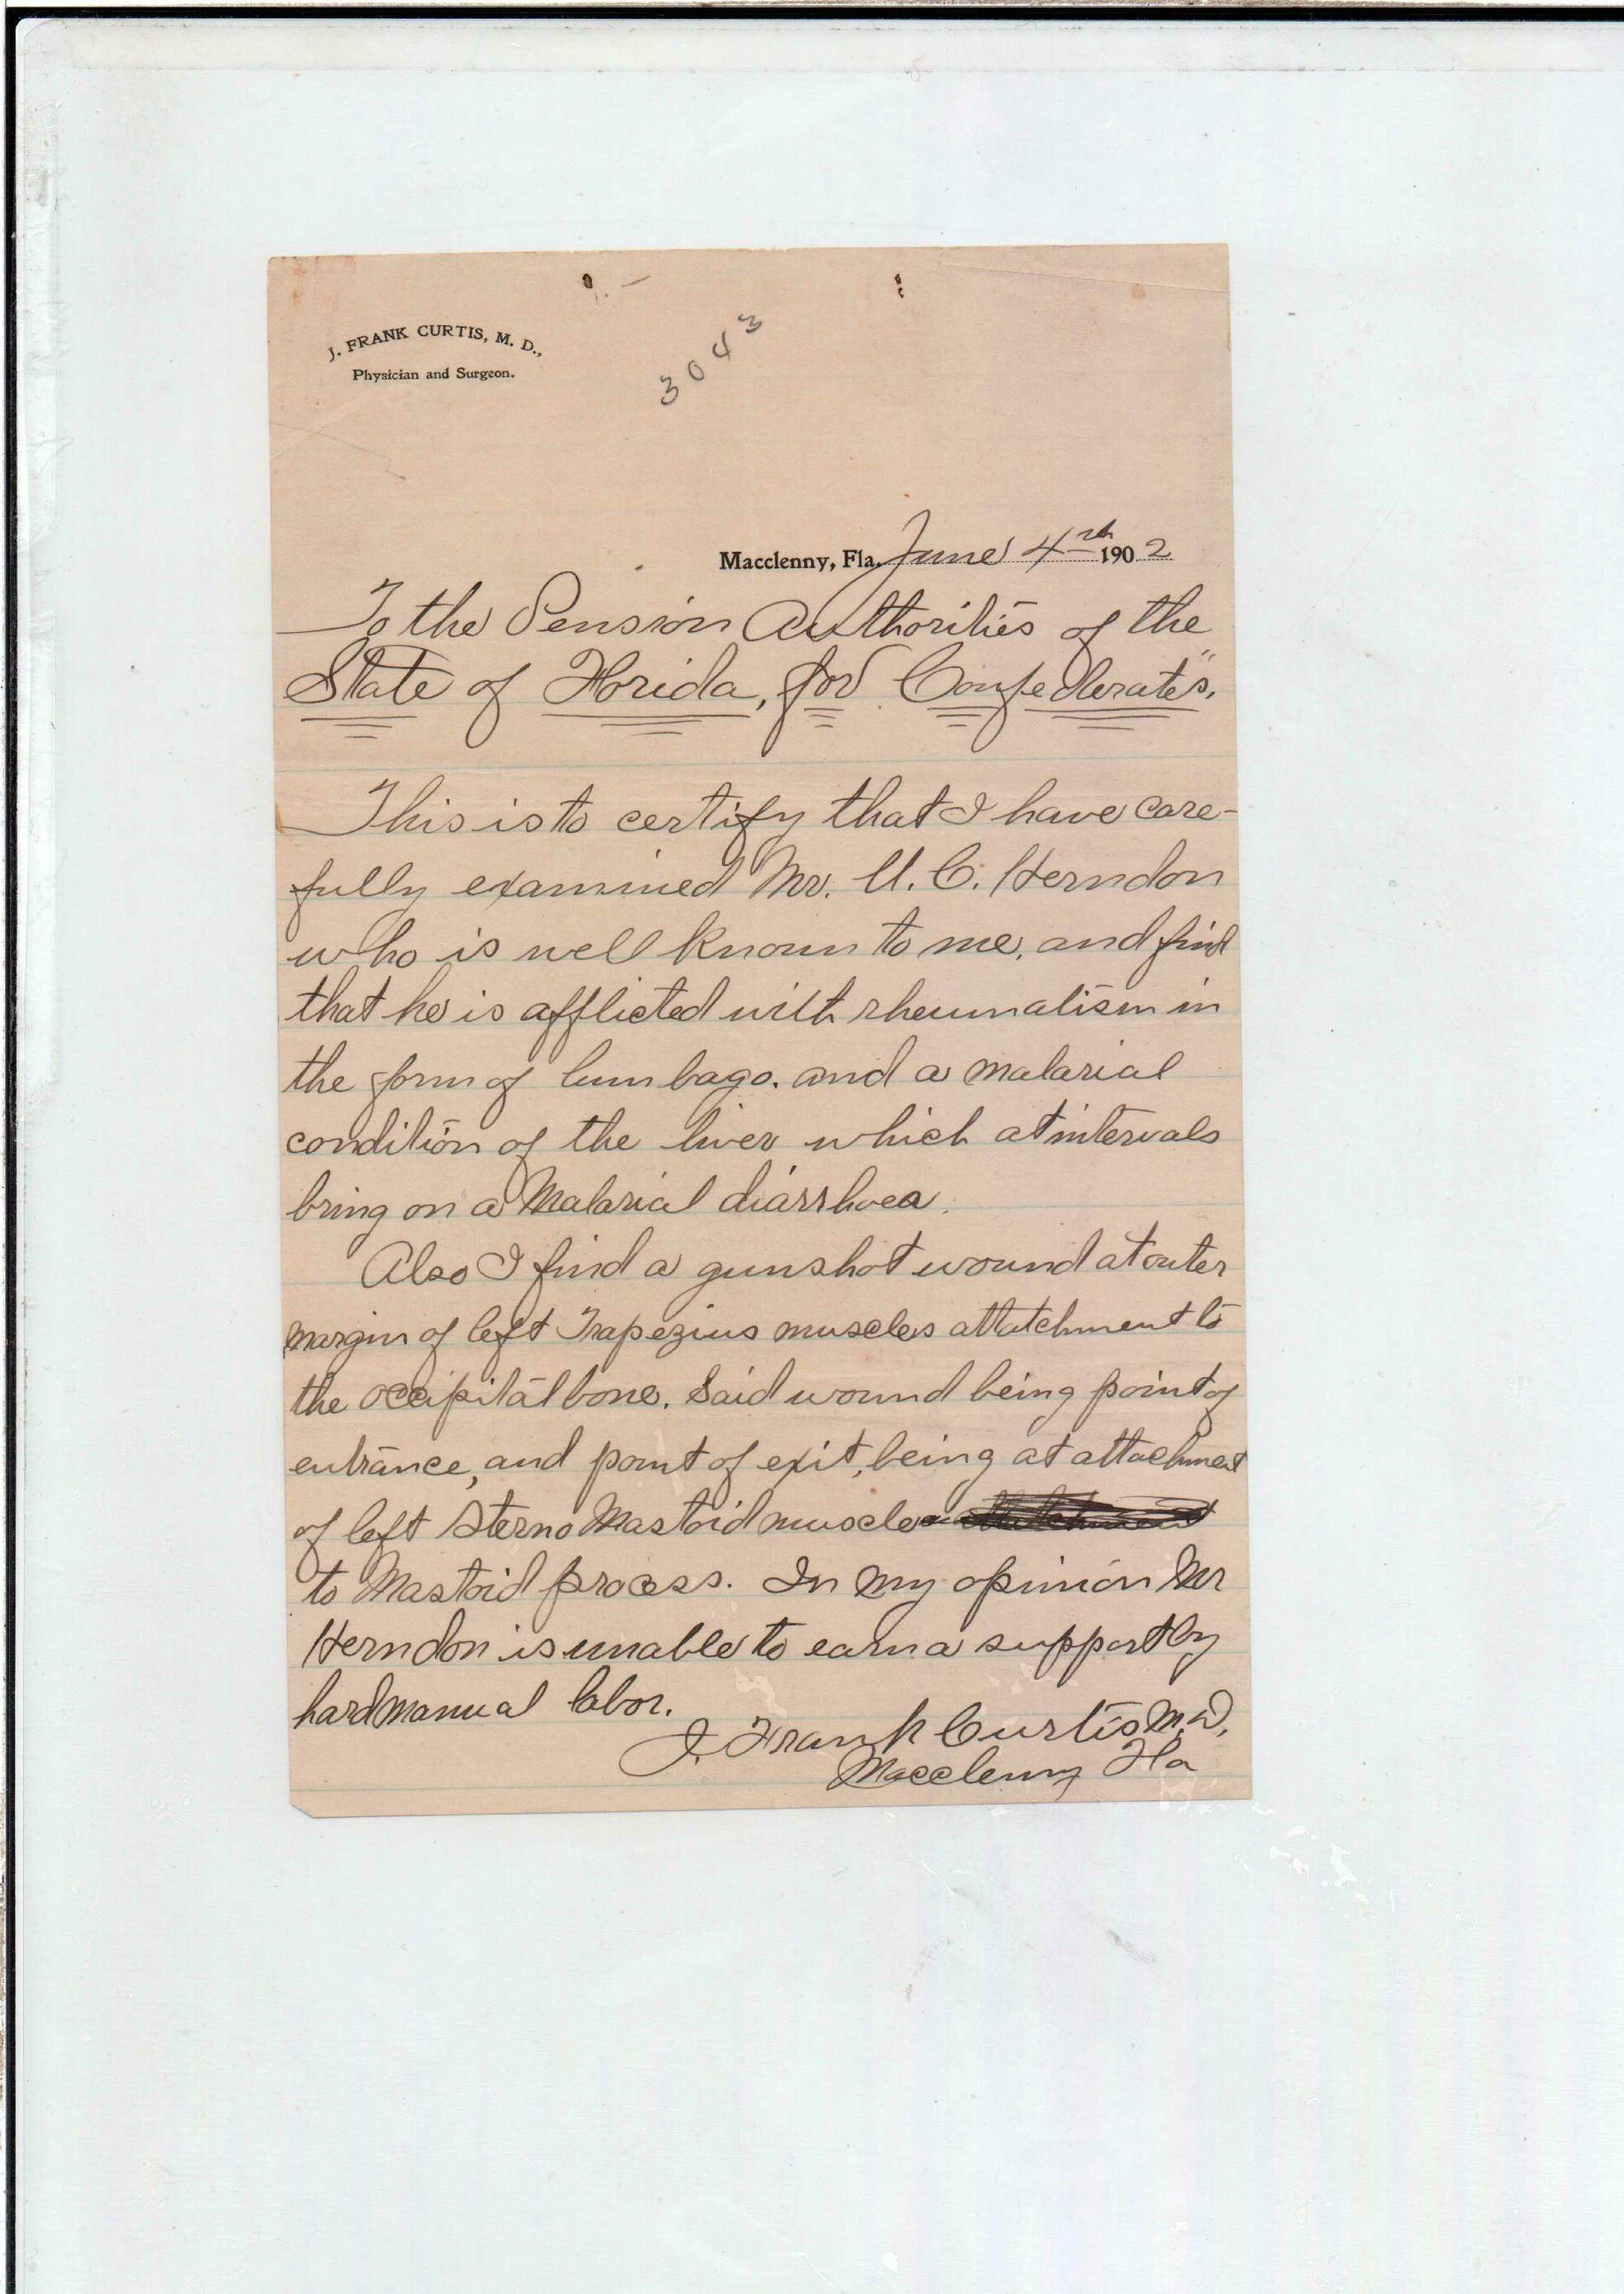 J. FRANK CURTIS, M. D.,
Physician and Surgeon.
3043
Macclenny, Fla. June 4th 1902
To the Pension Authorities of the
State of Florida, for Confederates".
This is to certify that I have care-
fully examined Mr. U. C. Herndon
who is well known to me, and find
that he is afflicted with rheumatism in
the form of lumbago. and a malarial
condition of the liver which at intervals
bring on a Malarial diarrhoea.
Also I find a gunshot wound at outer
margin of left Trapezius muscles attatchment to
the occipital bone. Said wound being point of
entrance, and point of exit, being at attachment
of left Sterno Mastoid muscle
to Mastoid process. In my opinion Mr
Herndon is unable to earn a support by
hard manual labor.
J. Frank Curtis M.D.
Macclenny Fla